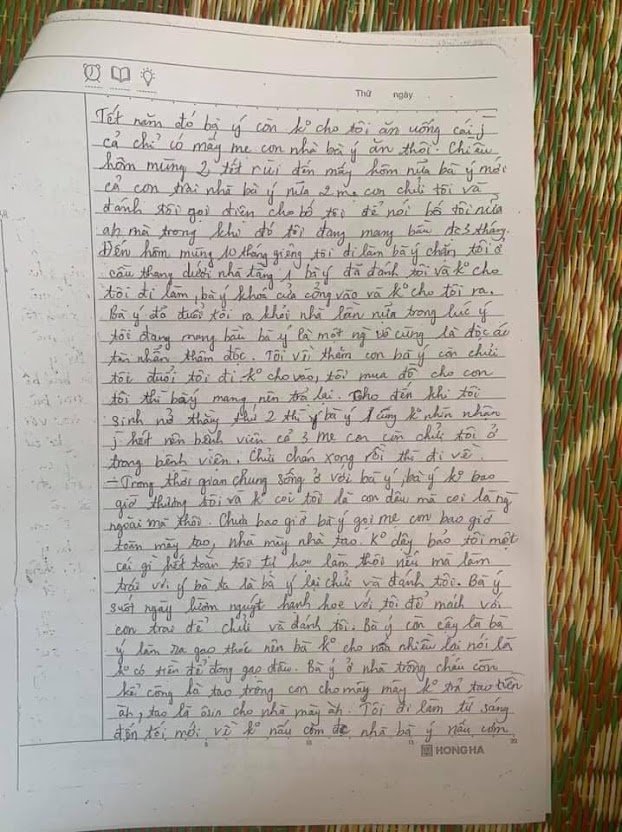 Thứ ngày
Tết năm đó bà ý còn k° cho tôi ăn uống cái j
cả chỉ có mấy mẹ con nhà bà ý ăn thôi. Chiều
hôm mùng 2 tết rùi đến mấy hôm nữa bà ý mới
cả con trai nhà bà ý nữa 2 mẹ con chửi tôi và
đánh tôi gọi điện cho bố tôi để nói bố tôi nữa
ah mà trong khi đó tôi đang mang bầu đc 3 tháng.
Đến hôm mùng 10 tháng giêng tôi đi làm bà ý chặn tôi ở
cầu thang dưới nhà tầng 1 bà ý đã đánh tôi và k° cho
tôi đi làm, bà ý khoá cửa cổng vào và k° cho tôi ra.
Bà ý đã đuổi tôi ra khỏi nhà lần nữa trong lúc ý
tôi đang mang bầu bà ý là một ng vô cùng là độc ác
tàn nhẫn thâm độc. Tôi về thăm con bà ý còn chửi
tôi đuổi tôi đi k° cho vào, tôi mua đồ cho con
tôi thì bà ý mang nên trả lại. Cho đến khi tôi
sinh nở thằng thứ 2 thì bà ý cũng k° nhìn nhận
j hết nên bệnh viện cả 3 mẹ con còn chửi tôi ở
trong bệnh viện. Chửi chán xong rồi thì đi về.
- Trong thời gian chung sống ở với bà ý, bà ý k° bao
giờ thương tôi và k° coi tôi là con dâu mà coi là ng
ngoài mà thôi. Chưa bao giờ bà ý gọi mẹ con bao giờ
toàn mày tao, nhà mày nhà tao. K° dậy bảo tôi một
cái gì hết toàn tôi tự học làm thôi nếu mà làm
trái với ý bà ta là bà ý lại chửi và đánh tôi. Bà ý
suốt ngày lườm nguýt hạnh hoẹ với tôi để mách với
con trai để chửi và đánh tôi. Bà ý còn cậy là bà
ý làm ra gạo thóc nên bà k° cho nấu nhiều lại nói là
k° có tiền để đong gạo đâu. Bà ý ở nhà trông cháu còn
kể công là tao trông con cho mày mày k° trả tao tiền
àh, tao là ôsin cho nhà mày àh. Tôi đi làm từ sáng
đến tối mới về k° nấu cơm đc nhà bà ý nấu cơm
HONG HA